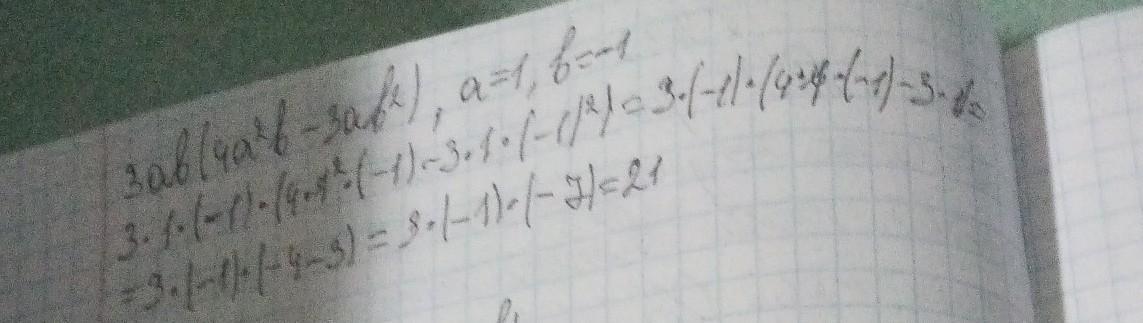 3ab(4a²b-3ab²), a=1, b=-1
3·1·(-1)·(4·1²·(-1)-3·1·(-1)²)=3·(-1)·(4·1·(-1)-3·1)=
=3·(-1)·(-4-3)=3·(-1)·(-7)=21